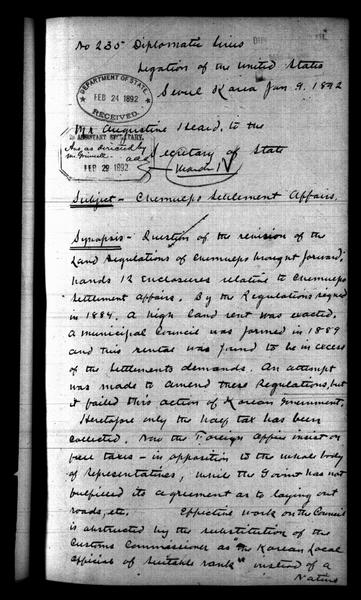 No 235 Diplomatic Series
Legation of the United States
Seoul Korea Jan. 9. 1892
DEPARTMENT OF STATE
FEB 24 1892
RECEIVED
Mr Augustine Heard, to the
ASSISTANT SECRETARY
Ans. as directed by
Mr. Grinnell
FEB 29 1892
Secretary of State
March 1
Subject - Chemulpo Settlement Affairs.
Synopsis - Question of the revision of the
Land Regulations of Chemulpo brought forward;
hands 12 enclosures relative to Chemulpo
Settlement affairs. By the Regulations signed
in 1884, a high land rent was exacted.
A municipal Council was formed in 1889
and this rental was found to be in excess
of the settlements demands. An attempt
was made to amend these Regulations, but
it failed thro action of Korean Government.
Heretofore only the half tax has been
collected. Now the Foreign Office insist on
full taxes - in opposition to the whole body
of Representatives, while the Govmt has not
fulfilled its agreement as to laying out
roads, etc. Effective work on the Council
is obstructed by the substitution of the
Customs Commissioner as "the Korean Local
official of suitable rank" instead of a
Native